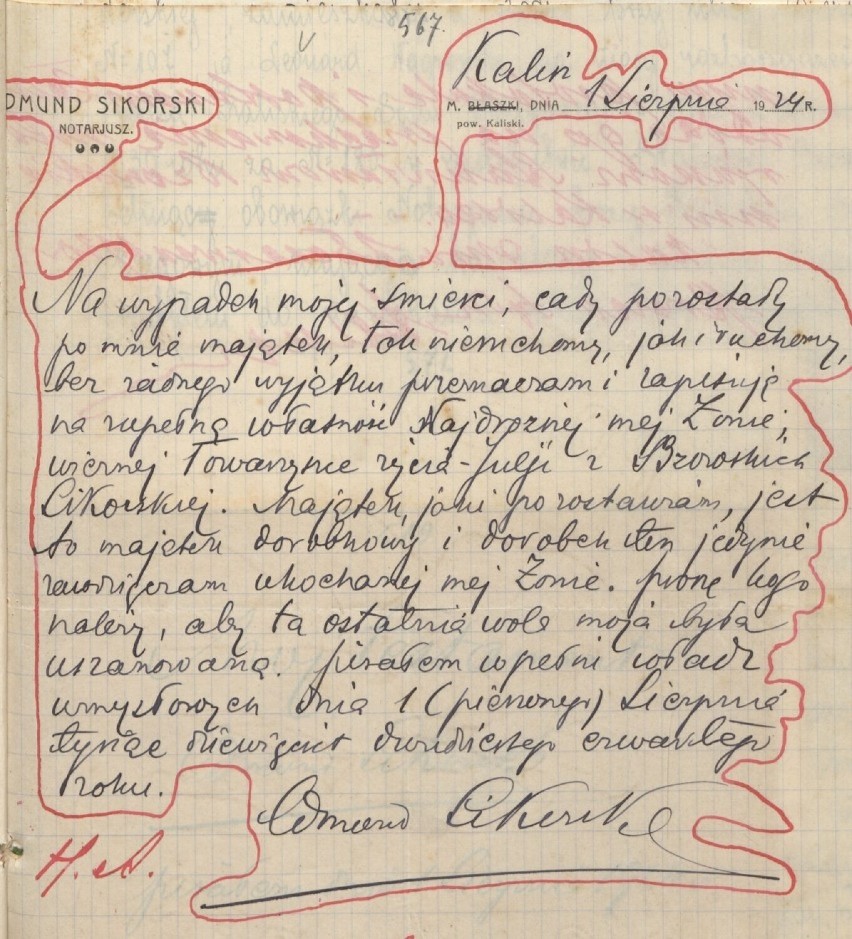 567.
Kalisz
EDMUND SIKORSKI
NOTARJUSZ.
M. BŁASZKI, DNIA 1 Sierpnia 1924 R.
pow. Kaliski.
Na wypadek mojej śmierci, cały pozostały
po mnie majątek, tak nieruchomy, jak i ruchomy,
bez żadnego wyjątku przeznaczam i zapisuję
na zupełną własność Najdroższej mej Żonie,
wiernej Towarzyszce życia - Julji z
Sikorskiej. Majątek, jaki pozostawiam, jest
to majątek dorobkowy i dorobek ten jedynie
zawdzięczam ukochanej mej Żonie. Proszę kogo
należy, aby ta ostatnia wola moja była
uszanowaną. Pisałem w pełni władz
umysłowych dnia 1 (pierwszego) Sierpnia
tysiąc dziewięćset dwudziestego czwartego
roku.
Edmund Sikorski